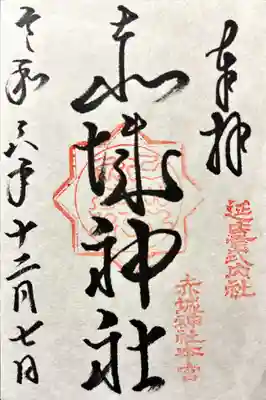 奉拝
延喜式内社
赤城神社
赤城神社本宮
令和六年十二月七日